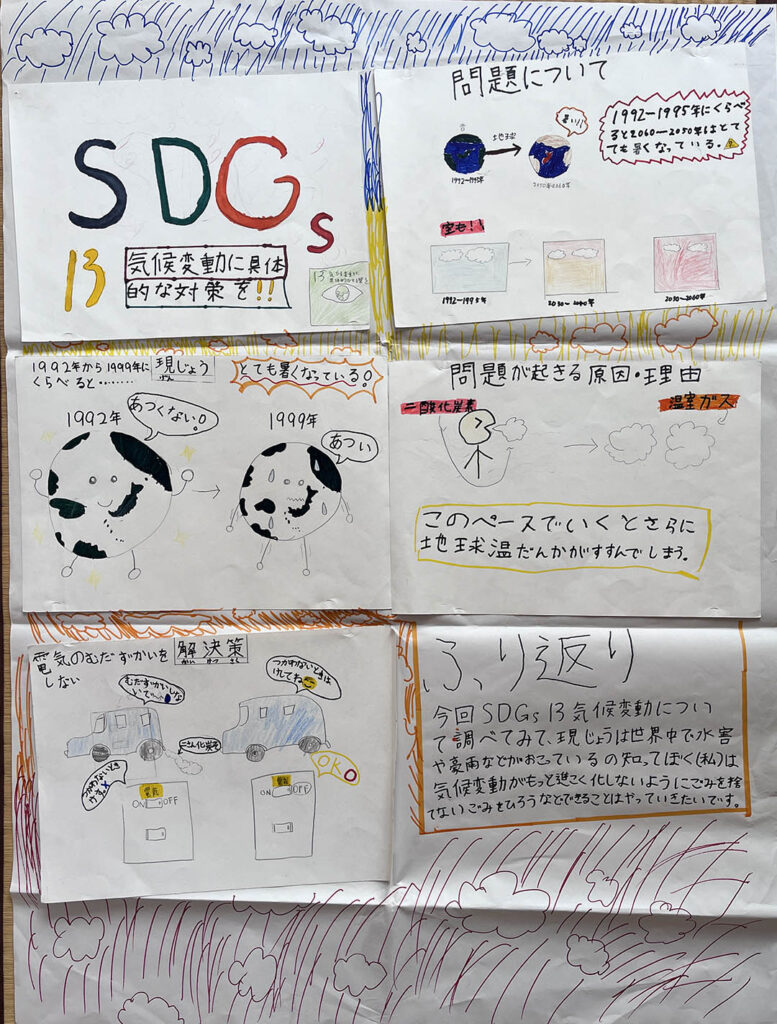 SDGs
13
気候変動に具体
的な対策を!!
13 気候変動に
問題について
昔
地球
暑い!!
1992-1995年
1992-1995年にくらべ
ると2060-2050年はとて
ても暑くなっている。
空も!!
1992-1995年
2030~2040年
2050~2060年
1992年から1999年に
くらべると········
現じょう
とても暑くなっている!
1992年
あつくない!
1999年
あつい
問題が起きる原因・理由
二酸化炭素
温室ガス
このペースでいくとさらに
地球温だんかがすすんでしまう。
電気のむだずかいを
しない
解決策
かい けつ さく
むだずかいしな
いで~
つかわないときは
けしてね
にさん化炭素
つかわないとき
けす。
電気
ON OFF
OKO
電気
ON OFF
ふり返り
今回SDGs13気候変動につい
て調べてみて、現じょうは世界中で、水害
や豪雨などがおこっているの知ってぼく(私)は
気候変動がもっと進こく化しないようにごみを捨
てないごみをひろうなどできることはやっていきたいです。